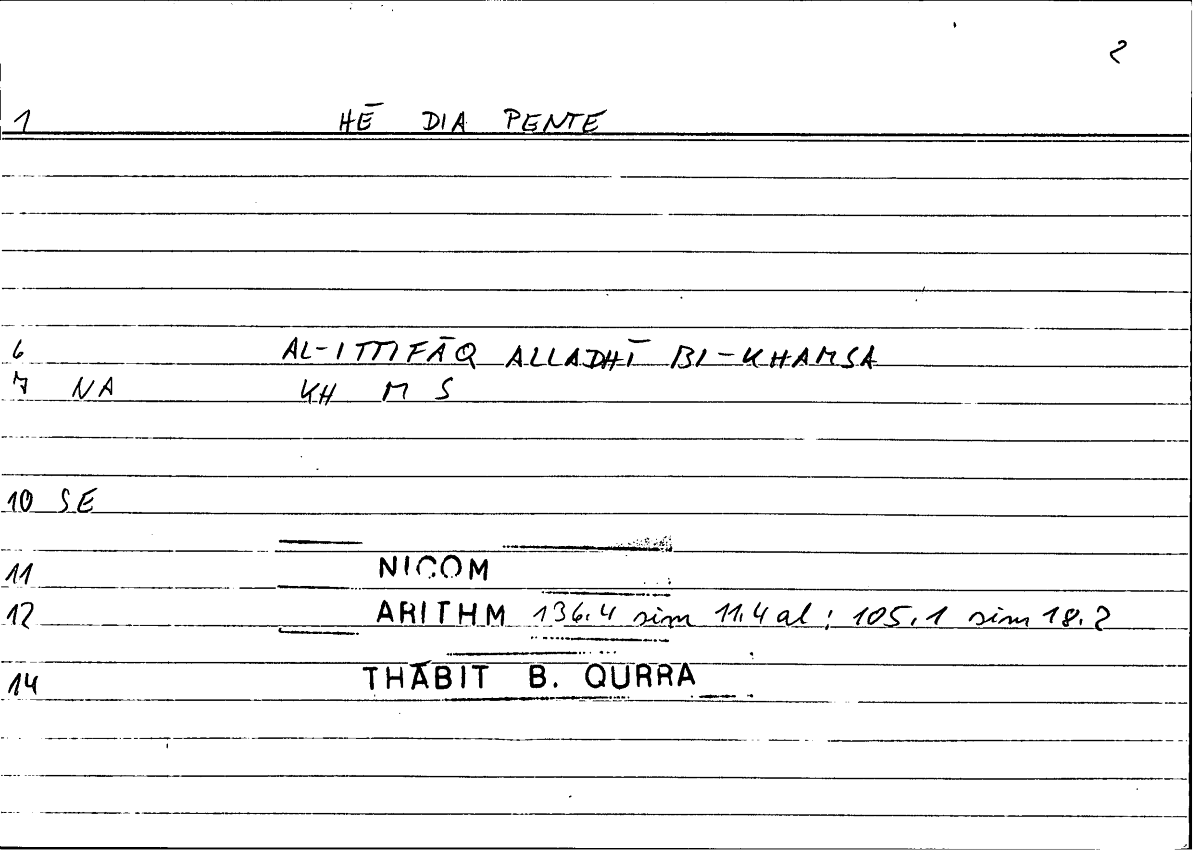 2
1 HĒ DIA PENTE
6 AL-ITTIFĀQ ALLADHĪ BI-KHAMSA
7 NA KH M S
10 SE
11 NICOM
12 ARITHM 136.4 sim 11.4 al; 105.1 sim 18.2
14 THĀBIT B. QURRA